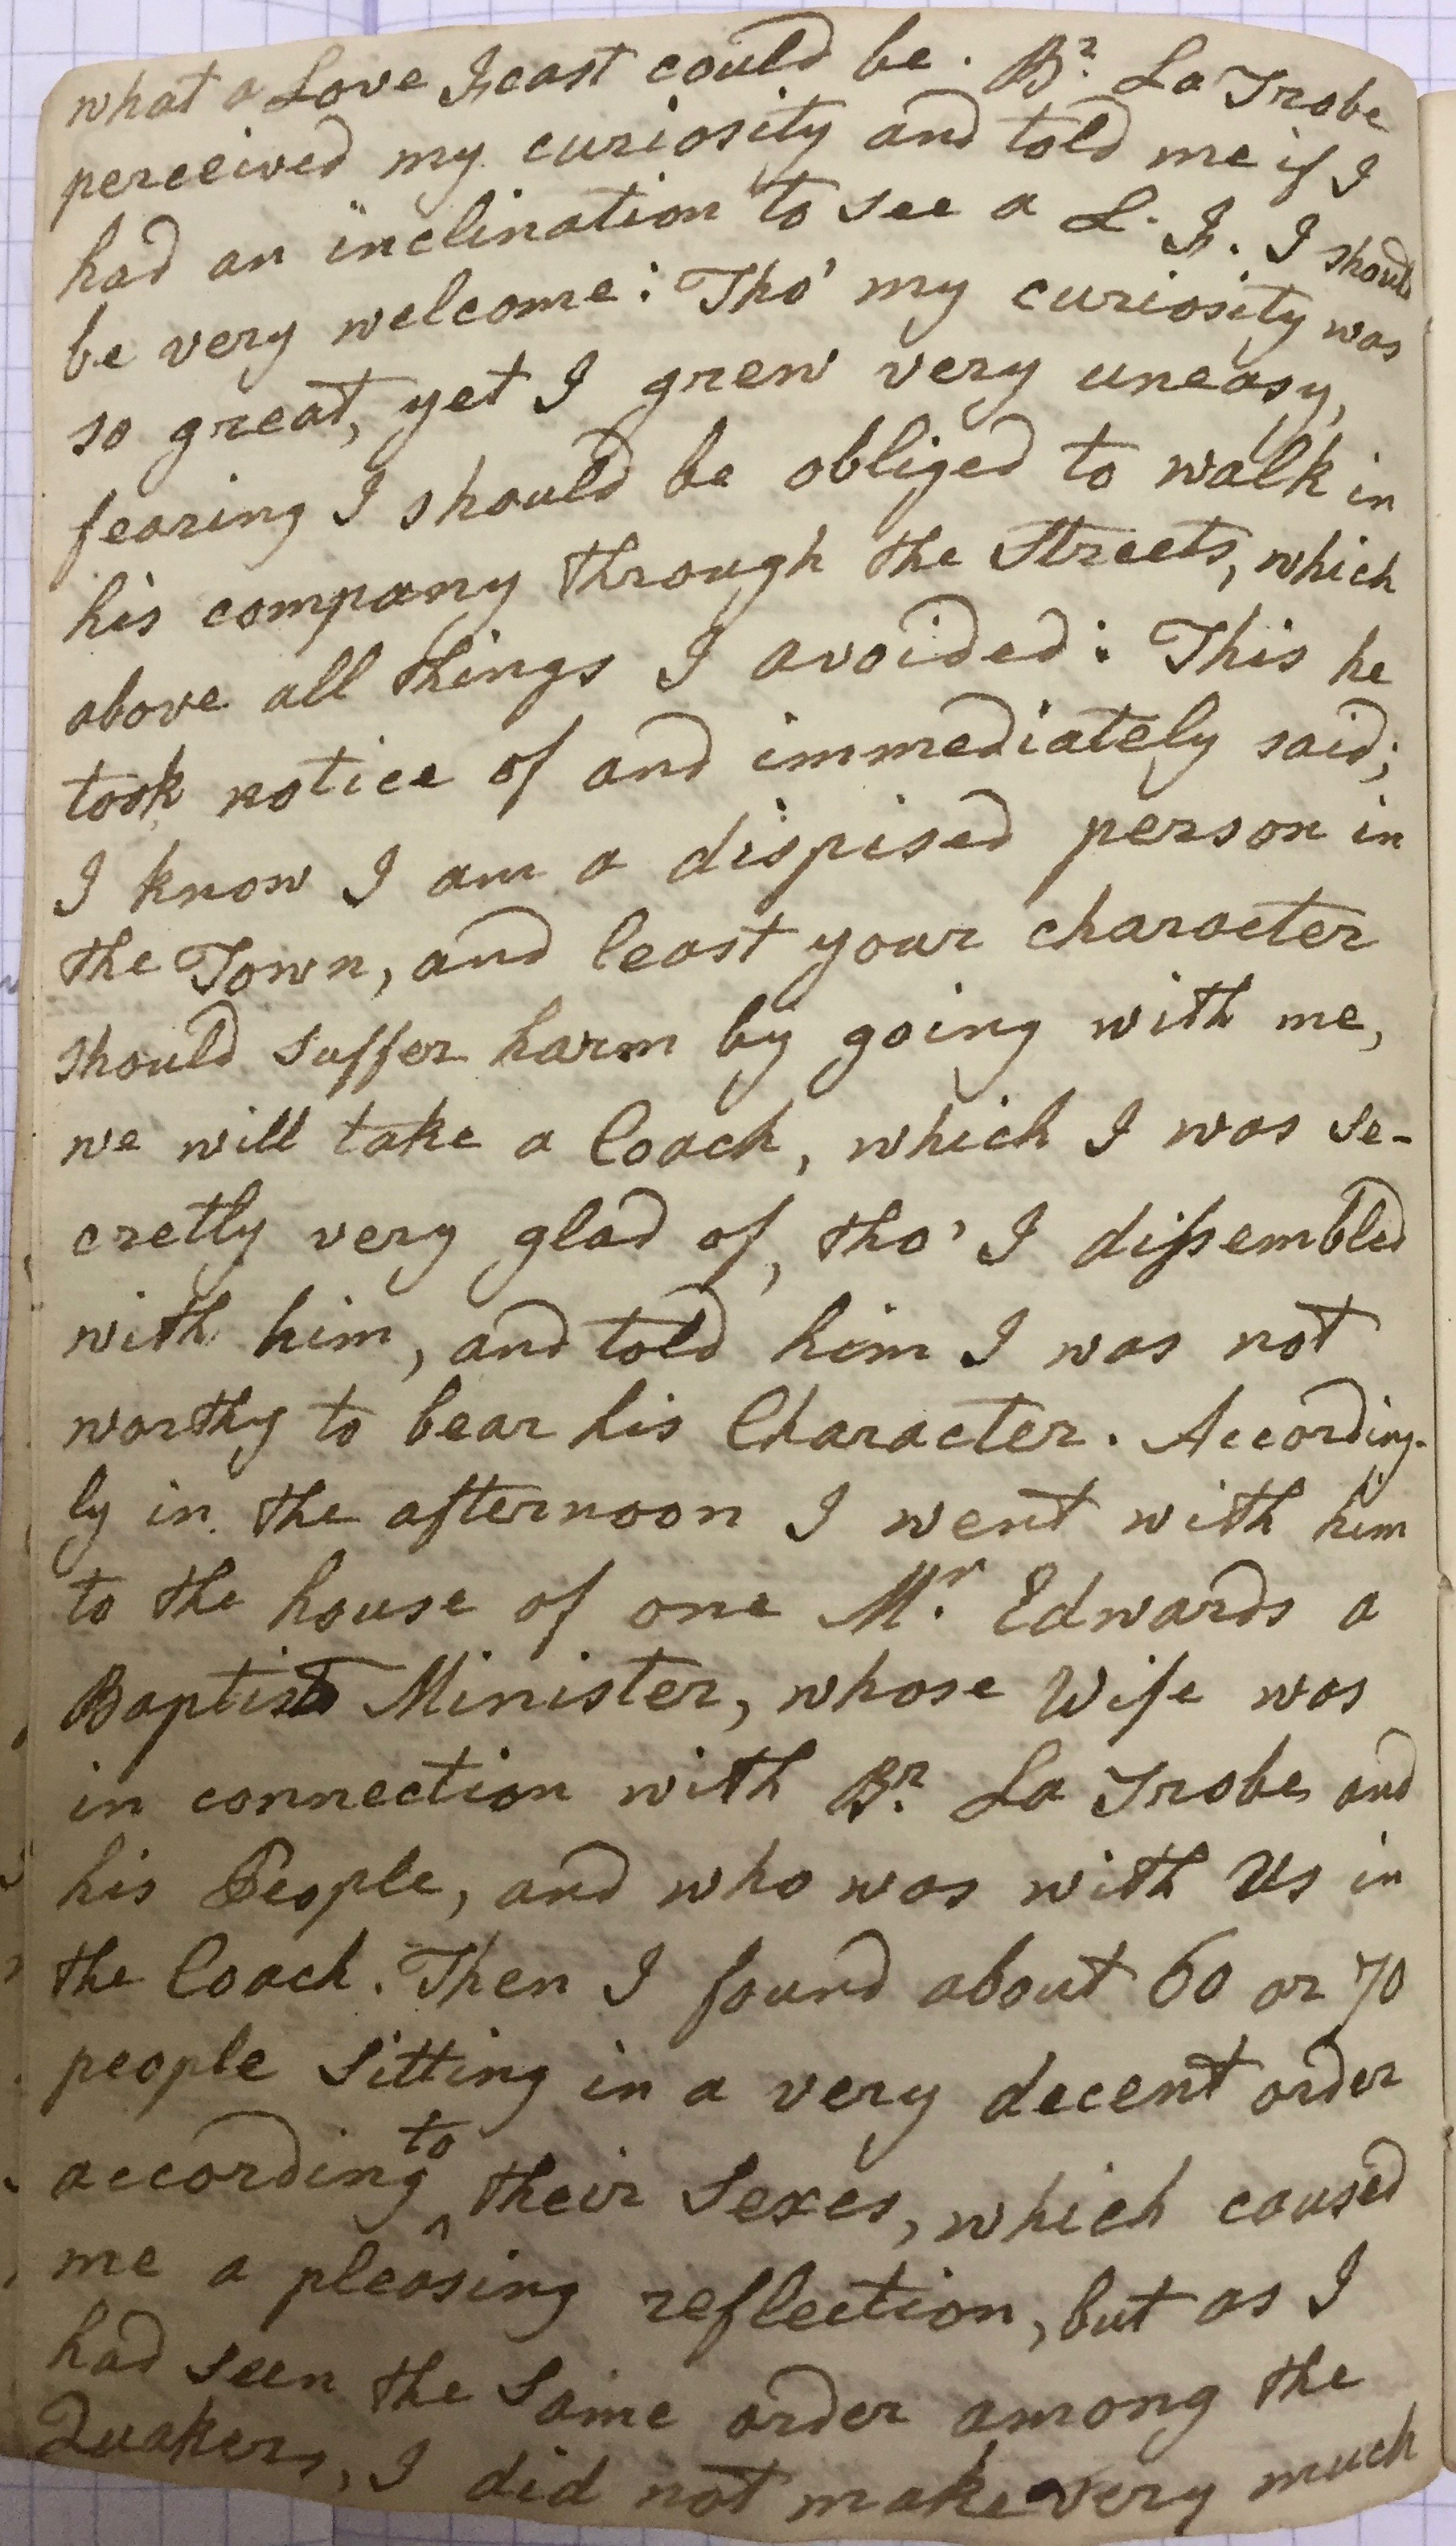 what a Love Feast could be. Br. La Trobe
perceived my curiosity and told me if I
had an inclination to see a L. F. I should
be very welcome: Tho' my curiosity was
so great, yet I grew very uneasy,
fearing I should be obliged to walk in
his company through the Streets, which
above all things I avoided: This he
took notice of and immediately said;
I know I am a dispised person in
the Town, and least your character
should suffer harm by going with me,
we will take a Coach, which I was se-
cretly very glad of, tho' I dissembled
with him, and told him I was not
worthy to bear his Character. According-
ly in the afternoon I went with him
to the house of one Mr. Edwards a
Baptist Minister, whose Wife was
in connection with Br. La Trobe and
his People, and who was with Us in
the Coach. Then I found about 60 or 70
people sitting in a very decent order
according to their Sexes, which caused
me a pleasing reflection, but as I
had seen the same order among the
Quakers, I did not make very much